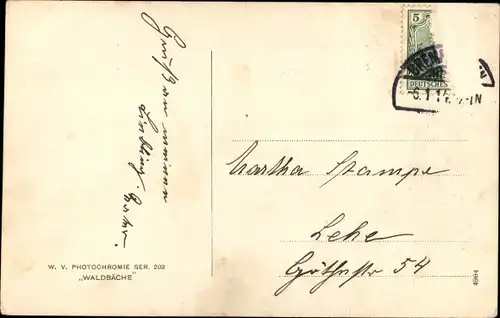 Gruß an meinen
Liebling.
W. V. PHOTOCHROMIE SER. 202
„WALDBÄCHE"
5
DEUTSCHES
BREM
-6.1.1
Martha Stampe
Lehe
Göthestr 54
4964